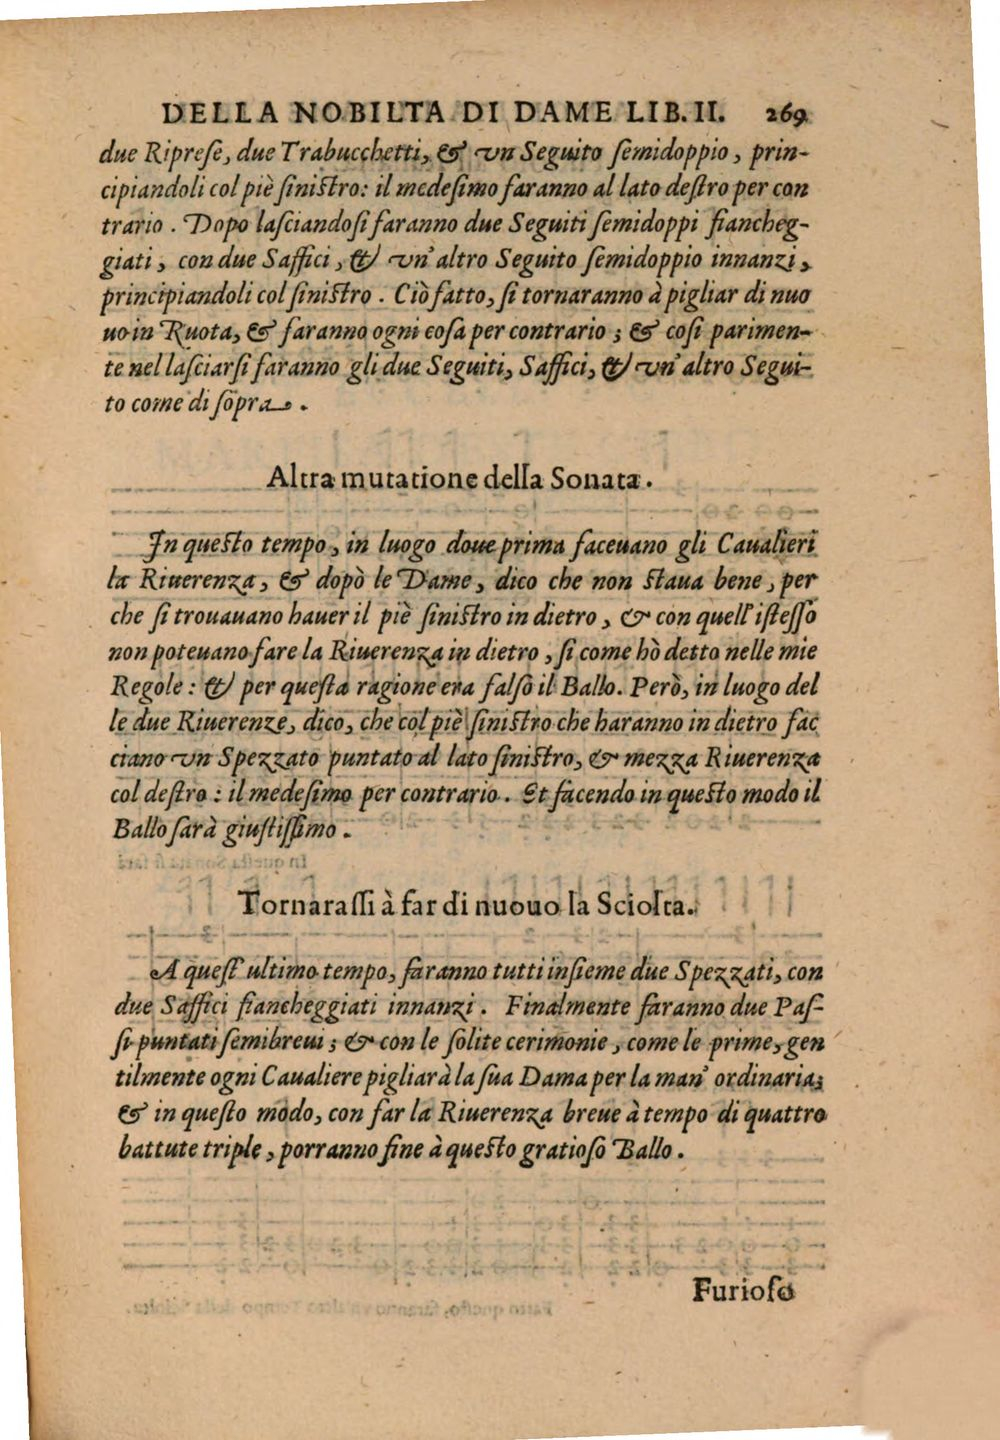 DELLA NOBILTA DI DAME LIB. II. 269
due Ripreſe, due Trabucchetti, & vn Seguito ſemidoppio, prin-
cipiandoli col piè ſiniſtro: il medeſimo faranno al lato deſtro per con
trario. Dopo laſciandoſi faranno due Seguiti ſemidoppi fiancheg-
giati, con due Saffici, & vn' altro Seguito ſemidoppio innanzi,
principiandoli col ſiniſtro. Ciò fatto, ſi tornaranno à pigliar di nuo
uo in Ruota, & faranno ogni coſa per contrario; & coſi parimen-
te nel laſciarſi faranno gli due Seguiti, Saffici, & vn' altro Segui-
to come di ſopra.
Altra mutatione della Sonata.
In queſto tempo, in luogo doue prima faceuano gli Caualieri
la Riuerenza, & dopò le Dame, dico che non ſtaua bene, per
che ſi trouauano hauer il piè ſiniſtro in dietro, & con quell' iſteſſo
non poteuano fare la Riuerenza in dietro, ſi come hò detto nelle mie
Regole: & per queſta ragione era falſo il Ballo. Però, in luogo del
le due Riuerenze, dico, che col piè ſiniſtro che haranno in dietro fac
ciano vn Spezzato puntato al lato ſiniſtro, & mezza Riuerenza
col deſtro: il medeſimo per contrario. Et facendo in queſto modo il
Ballo ſarà giuſtiſſimo.
Tornaraſſi à far di nuouo la Sciolta.
A queſt' ultimo tempo, faranno tutti inſieme due Spezzati, con
due Saffici fiancheggiati innanzi. Finalmente faranno due Paſ-
ſi puntati ſemibreui; & con le ſolite cerimonie, come le prime, gen
tilmente ogni Caualiere pigliarà la ſua Dama per la man' ordinaria;
& in queſto modo, con far la Riuerenza breue à tempo di quattro
battute triple, porranno fine à queſto gratioſo Ballo.
Furioſo